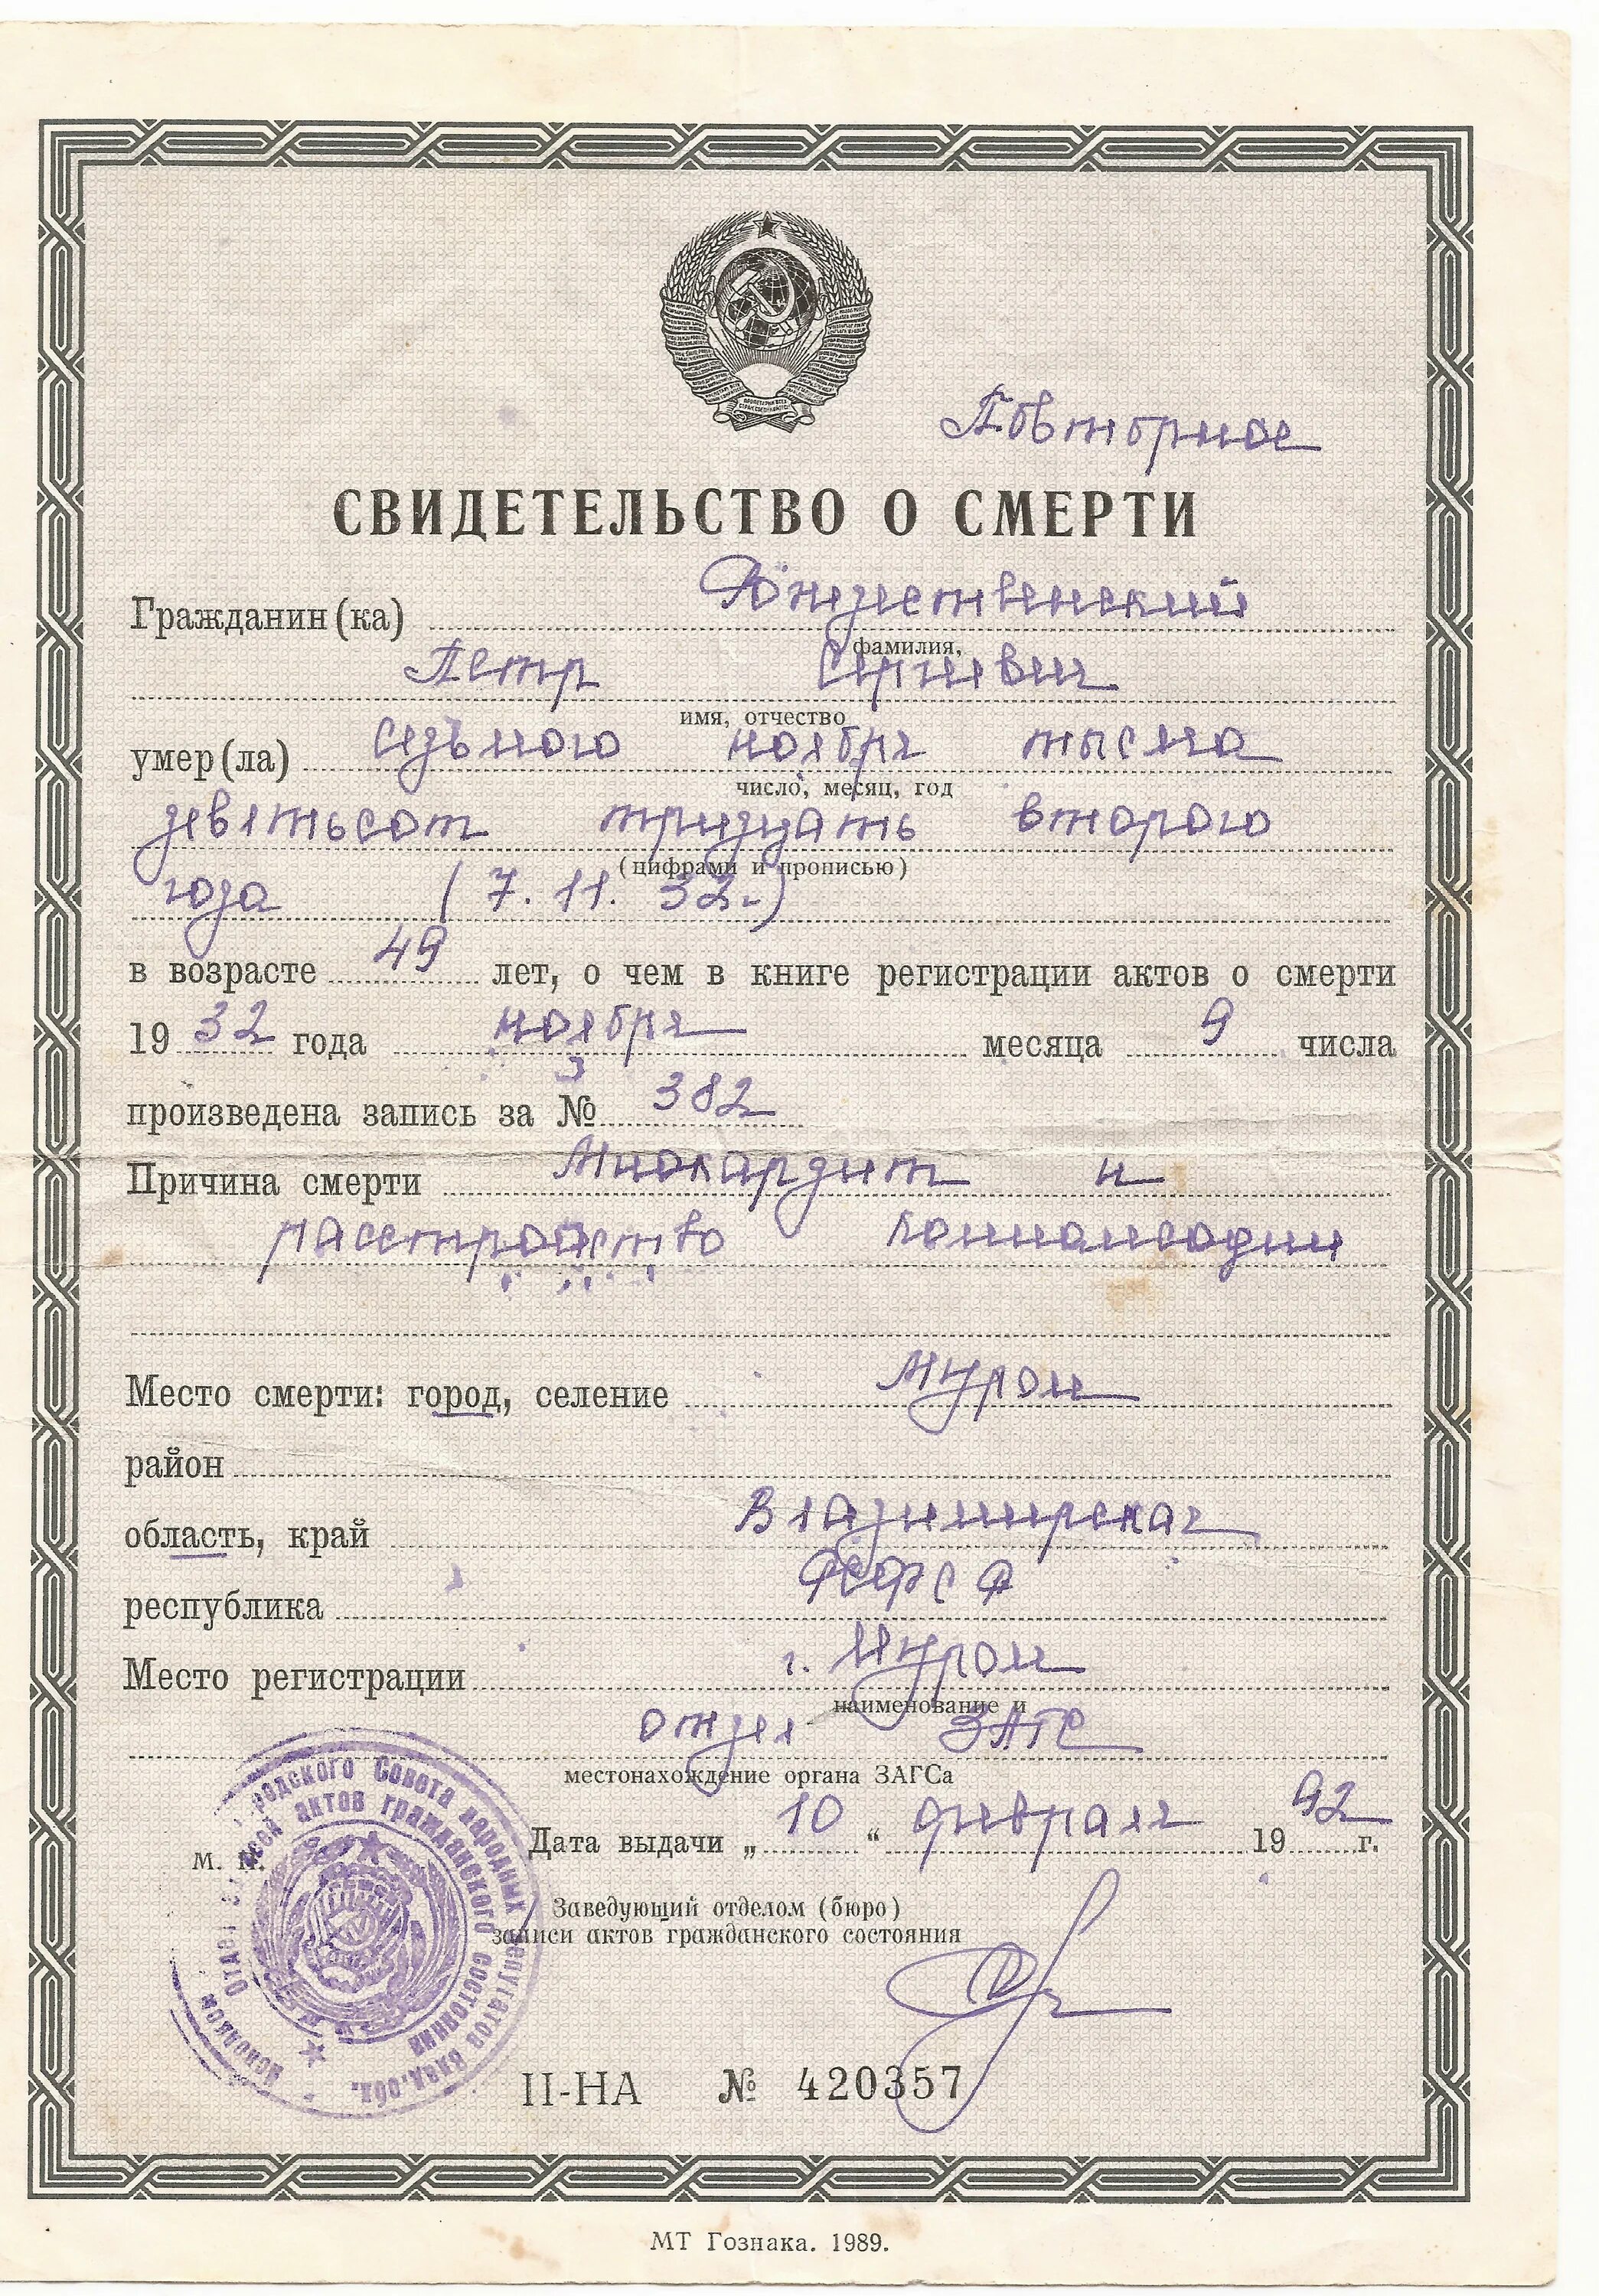 Повторное
СВИДЕТЕЛЬСТВО О СМЕРТИ
Гражданин(ка) Рождественский
фамилия,
Петр Сергеевич
имя, отчество
умер(ла) седьмого ноября тысяча
число, месяц, год
девятьсот тридцать второго
(цифрами и прописью)
года (7.11.32г.)
в возрасте 49 лет, о чем в книге регистрации актов о смерти
1932 года ноября месяца 9 числа
произведена запись за № 382
Причина смерти Миокардит и
расстройство
Место смерти: город, селение Муром
район
область, край Владимирская
республика РСФСР
Место регистрации г. Муром
наименование и
отдел ЗАГС
местонахождение органа ЗАГСа
Дата выдачи „10“ февраля 1992 г.
М. П.
Заведующий отделом (бюро)
записи актов гражданского состояния
II-НА № 420357
городского Совета народных депутатов Влад.обл.
Исполком
Отдел записей актов гражданского состояния
МТ Гознака. 1989.